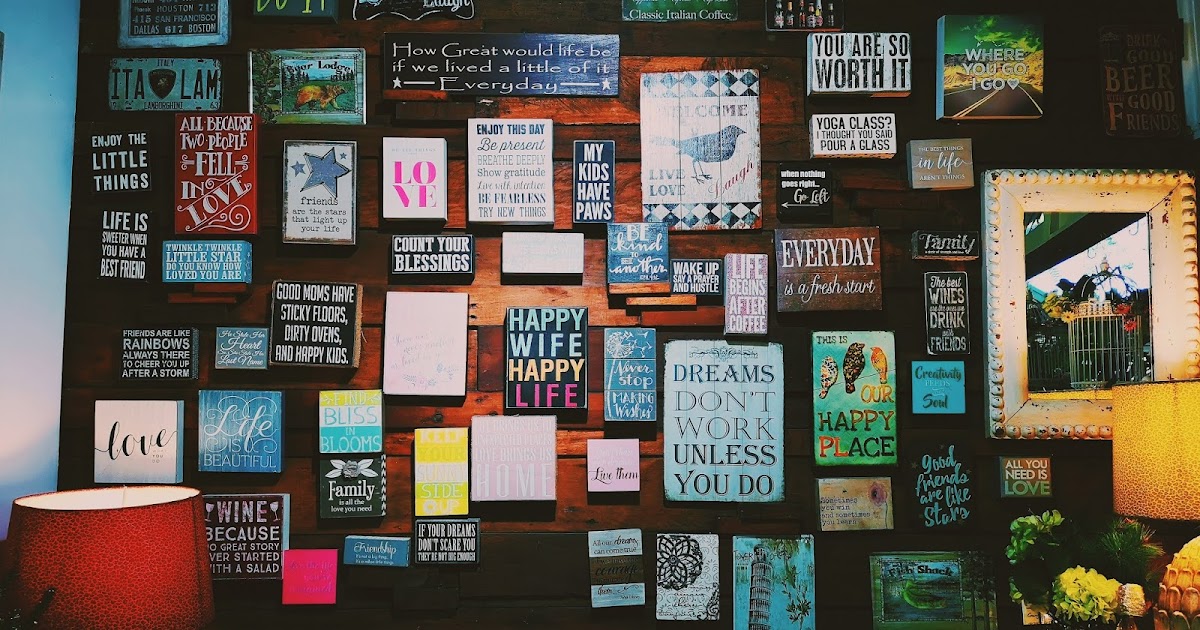 415 SAN FRANCISCO
DALLAS 617 BOSTON
DO IT
Laugh
Classic Italian Coffee
ITALY
ITA LAM
LAMBORGHINI
How Great would life be
if we lived a little of it
Everyday
YOU ARE SO
WORTH IT
WHERE
YOU GO
I GO
DRINK
GOOD
BEER
WITH GOOD
Friends
ENJOY THE
LITTLE
THINGS
ALL BECAUSE
TWO PEOPLE
FELL
IN
LOVE
friends
are the stars
that light up
your life
LO
VE
ENJOY THIS DAY
Be present
BREATHE DEEPLY
Show gratitude
Live with intention
BE FEARLESS
TRY NEW THINGS
MY
KIDS
HAVE
PAWS
WELCOME
LIVE
LOVE
Laugh
YOGA CLASS?
I THOUGHT YOU SAID
POUR A GLASS
THE BEST THINGS
in life
AREN'T THINGS
when nothing
goes right...
Go Left
LIFE IS
SWEETER WHEN
YOU HAVE A
BEST FRIEND
TWINKLE TWINKLE
LITTLE STAR
DO YOU KNOW HOW
LOVED YOU ARE
COUNT YOUR
BLESSINGS
BE
kind
to one
another
WAKE UP
SAY A PRAYER
AND HUSTLE
LIFE
BEGINS
AFTER
COFFEE
EVERYDAY
is a fresh start
Family
The best
WINES
are the ones we
DRINK
with
FRIENDS
GOOD MOMS HAVE
STICKY FLOORS,
DIRTY OVENS,
AND HAPPY KIDS.
FRIENDS ARE LIKE
RAINBOWS
ALWAYS THERE
TO CHEER YOU UP
AFTER A STORM
He Stole Her
Heart
Last Name
HAPPY
WIFE
HAPPY
LIFE
Never
stop
MAKING
Wishes
DREAMS
DON'T
WORK
UNLESS
YOU DO
THIS IS
OUR
HAPPY
PLACE
Creativity
FEEDS THE
Soul
love
Life
IS
BEAUTIFUL
FIND
BLISS
IN
BLOOMS
Family
is all the
love you need
KEEP
YOUR
SUNNY
SIDE
UP
HOME
Live them
Sometimes
you win
and sometimes
you learn
Good
friends
are like
Stars
ALL YOU
NEED IS
LOVE
WINE
BECAUSE
NO GREAT STORY
EVER STARTED
WITH A SALAD
Friendship
IF YOUR DREAMS
DON'T SCARE YOU
THEY'RE NOT BIG ENOUGH
All our dreams
can come true
Fish Shack